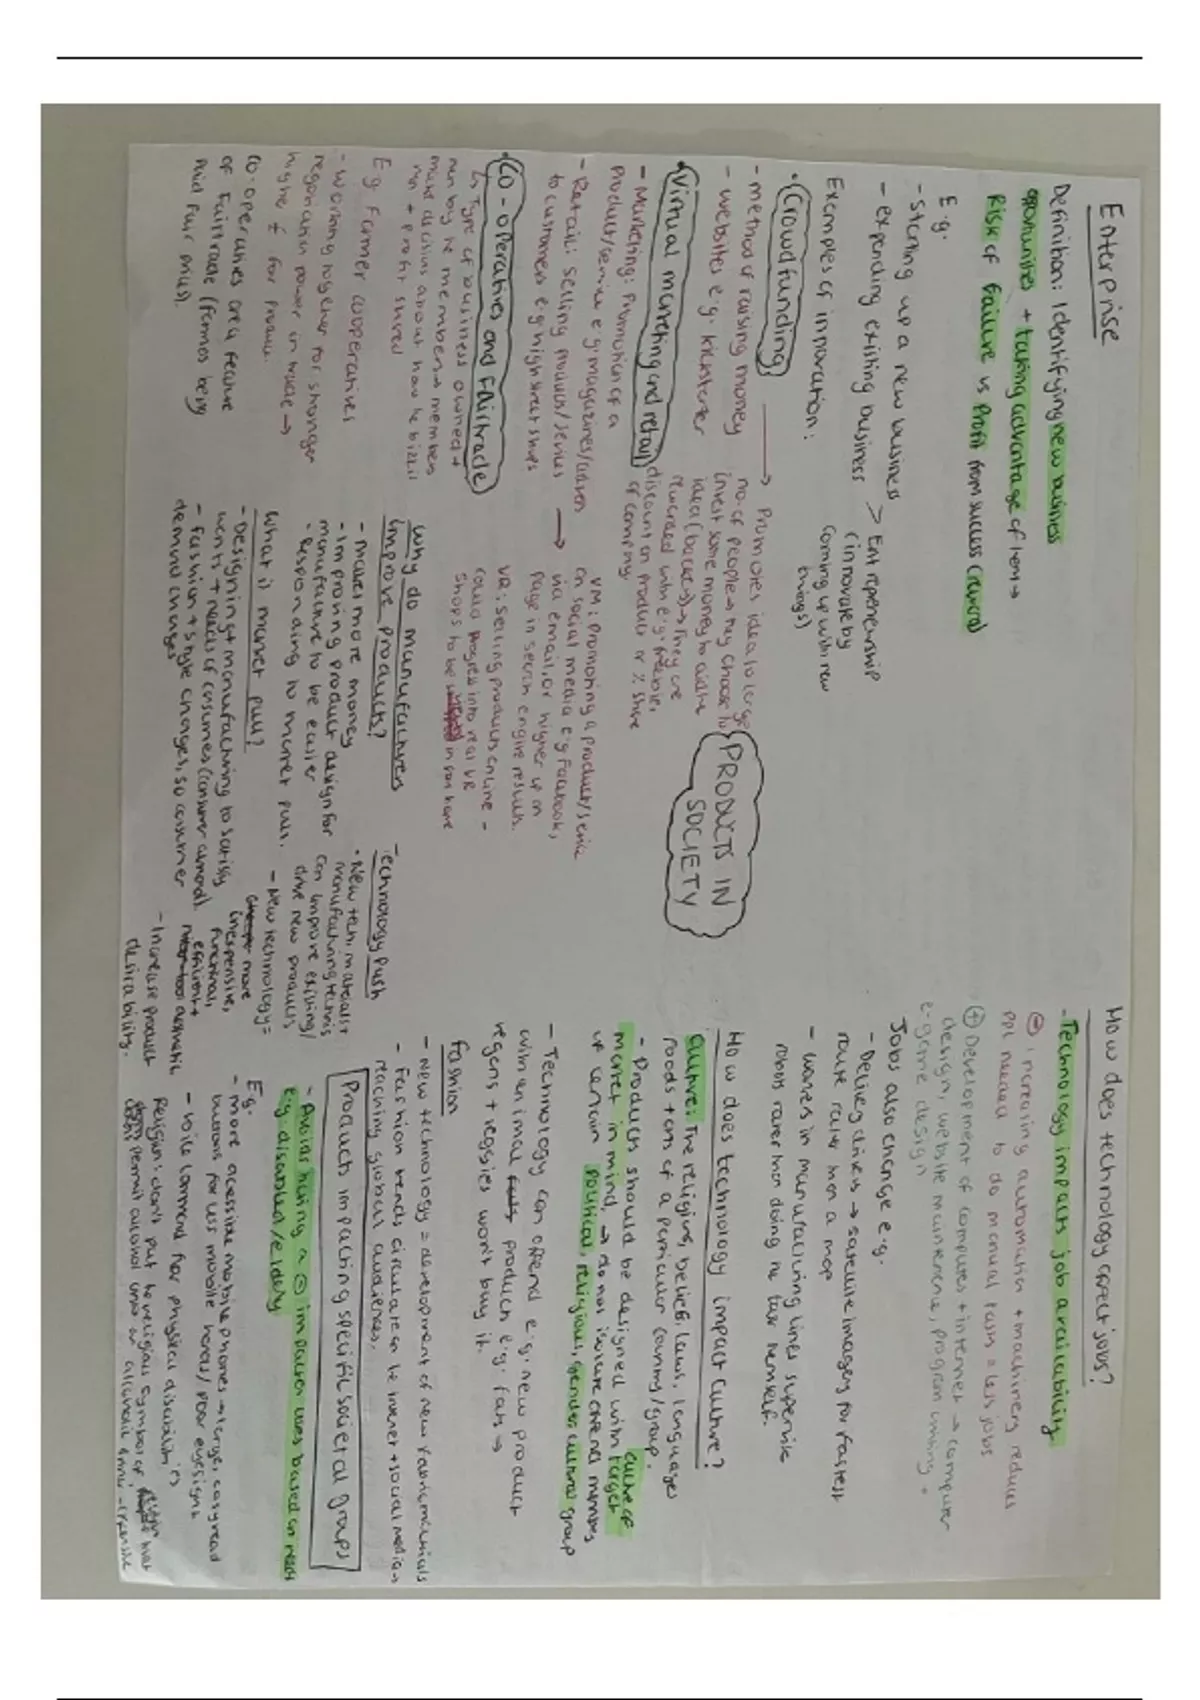 Enterprise
Definition: Identifying new business
opportunities + taking advantage of them →
Risk of failure vs Profit from success (reward)
E.g.
- starting up a new business
- expanding existing business > Entrepreneurship
(innovate by
coming up with new
things)
Examples of innovation:
• Crowdfunding
- method of raising money
- websites e.g. kickstarter
→ Promotes idea to large
no. of people → they choose to
invest some money to aid the
idea (backers) → They are
rewarded with e.g. freebies,
discount on product or % share
of company.
• Virtual marketing and retail
- Marketing: Promotion of a
product/service e.g. magazines/adverts
- Retail: selling products/services →
to customers e.g. high street shops
VM: promoting a product/service
on social media e.g. Facebook,
via email, or higher up on
page in search engine results.
VR: selling products online -
could progress into real VR
shops to be in from home
• Co-operatives and Fairtrade
↳ Type of business owned +
run by the members → members
make decisions about how the biz is
run + profit shared
E.g. Farmer cooperatives
- working together for stronger
negotiation power in trade →
higher £ for produce.
Co-operatives are a feature
of Fairtrade (farmers being
paid fair prices).
PRODUCTS IN
SOCIETY
Why do manufacturers
improve products?
- makes more money
- improving product design for
manufacture to be easier
- Responding to market pull.
What is market pull?
- Designing + manufacturing to satisfy
wants + needs of consumers (consumer demand).
- fashion + style changes, so consumer
demand changes
Technology Push
• New tech, materials +
manufacturing techniques
can improve existing/
drive new products
- New technology =
cheaper more
inexpensive,
functional,
efficient +
aesthetic
- Increase product
desirability.
How does technology affect jobs?
- Technology impacts job availability
⊖ increasing automation + machinery reduces
ppl needed to do manual tasks = less jobs
⊕ Development of computers + internet → computer
design, website maintenance, program writing +
e-game design
Jobs also change e.g.
- Delivery drivers → satellite imagery for fastest
route rather than a map
- workers in manufacturing lines supervise
robots rather than doing the task themself.
How does technology impact culture?
Culture: The religions, beliefs, laws, languages
foods + arts of a particular country/group.
- Products should be designed with culture of target
market in mind, → do not isolate/offend members
of certain political, religious, gender, cultural group
- Technology can offend e.g. new product
with animal fats product e.g. fats →
vegans + veggies won't buy it.
Fashion
- New technology = development of new fabric materials
- Fashion trends circulate on the internet + social media →
reaching global audiences.
Products impacting specific societal groups
- Avoid having a ⊖ impact on users based on needs
e.g. disabled/elderly
E.g.
- more accessible mobile phones → large, easy read
buttons for less mobile hands/poor eyesight
- voice command for physical disabilities
Religion: don't put the religious symbol of
permit alcohol